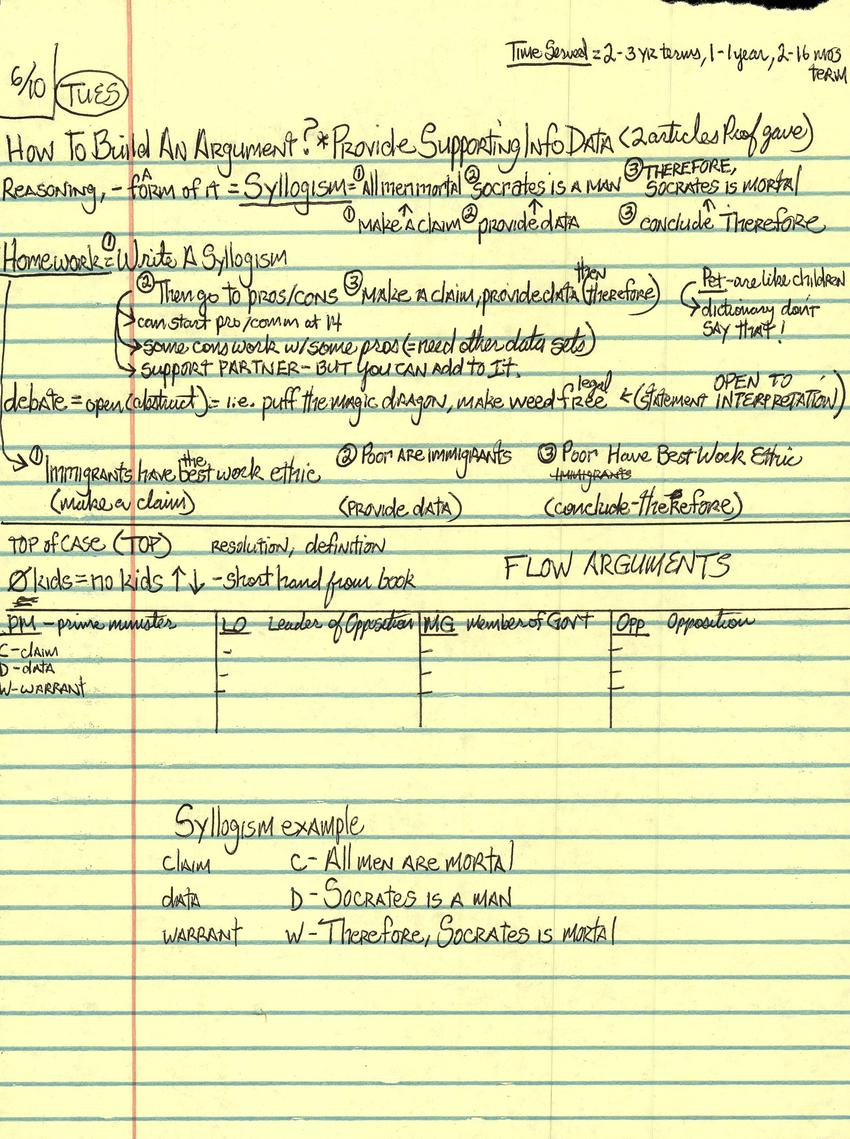 Time Served = 2-3 yr terms, 1-1 year, 2-16 mos
term
6/10 TUES
How To Build An Argument? * Provide Supporting Info Data (2 articles Prof gave)
Reasoning, - A form of it = Syllogism = ① All men mortal ② Socrates is a man ③ THEREFORE,
Socrates is mortal
① Make A claim ② provide data ③ conclude Therefore
Homework = ① Write A Syllogism
② Then go to pros/cons ③ Make a claim, provide data then (therefore)
Pet - are like children
can start pro/comm at 14
dictionary don't
say that!
some cons work w/some pros (= need other data sets)
support PARTNER - But you CAN add to It.
debate = open (abstract) = i.e. puff the magic dragon, make weed free legal ← (statement OPEN TO INTERPRETATION)
① Immigrants have the best work ethic ② Poor are immigrants ③ Poor Have Best Work Ethic
immigrants
(make a claim) (PROVIDE DATA) (conclude-therefore)
TOP of CASE (TOP) resolution, definition
FLOW ARGUMENTS
Ø kids = no kids ↑↓ - short hand from book
PM - prime minister LO Leader of Opposition MG Member of Gov't Opp Opposition
C - claim - - -
D - data - - -
W - WARRANT - - -
Syllogism example
claim C - All men are mortal
data D - Socrates is a man
WARRANT W - Therefore, Socrates is mortal